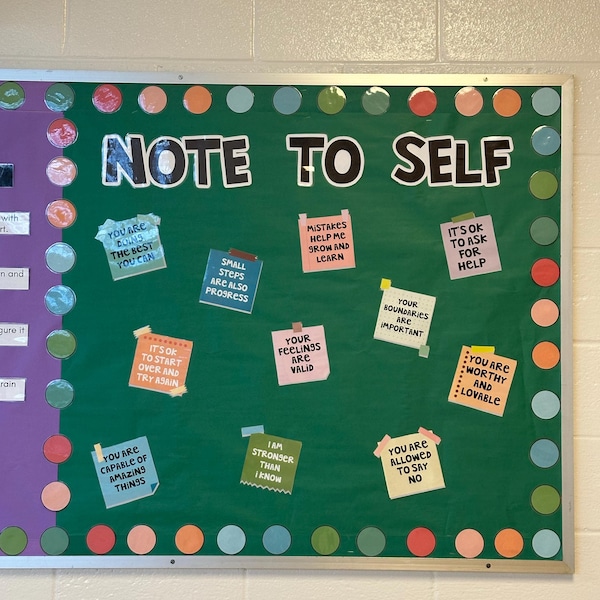 NOTE TO SELF
YOU ARE
DOING
THE BEST
YOU CAN
MISTAKES
HELP ME
GROW AND
LEARN
IT'S OK
TO ASK
FOR
HELP
SMALL
STEPS
ARE ALSO
PROGRESS
YOUR
BOUNDARIES
ARE
IMPORTANT
IT'S OK
TO START
OVER AND
TRY AGAIN
YOUR
FEELINGS
ARE
VALID
YOU ARE
WORTHY
AND
LOVABLE
YOU ARE
CAPABLE OF
AMAZING
THINGS
I AM
STRONGER
THAN
I KNOW
YOU ARE
ALLOWED
TO SAY
NO
with
rt.
n and
gure it
rain